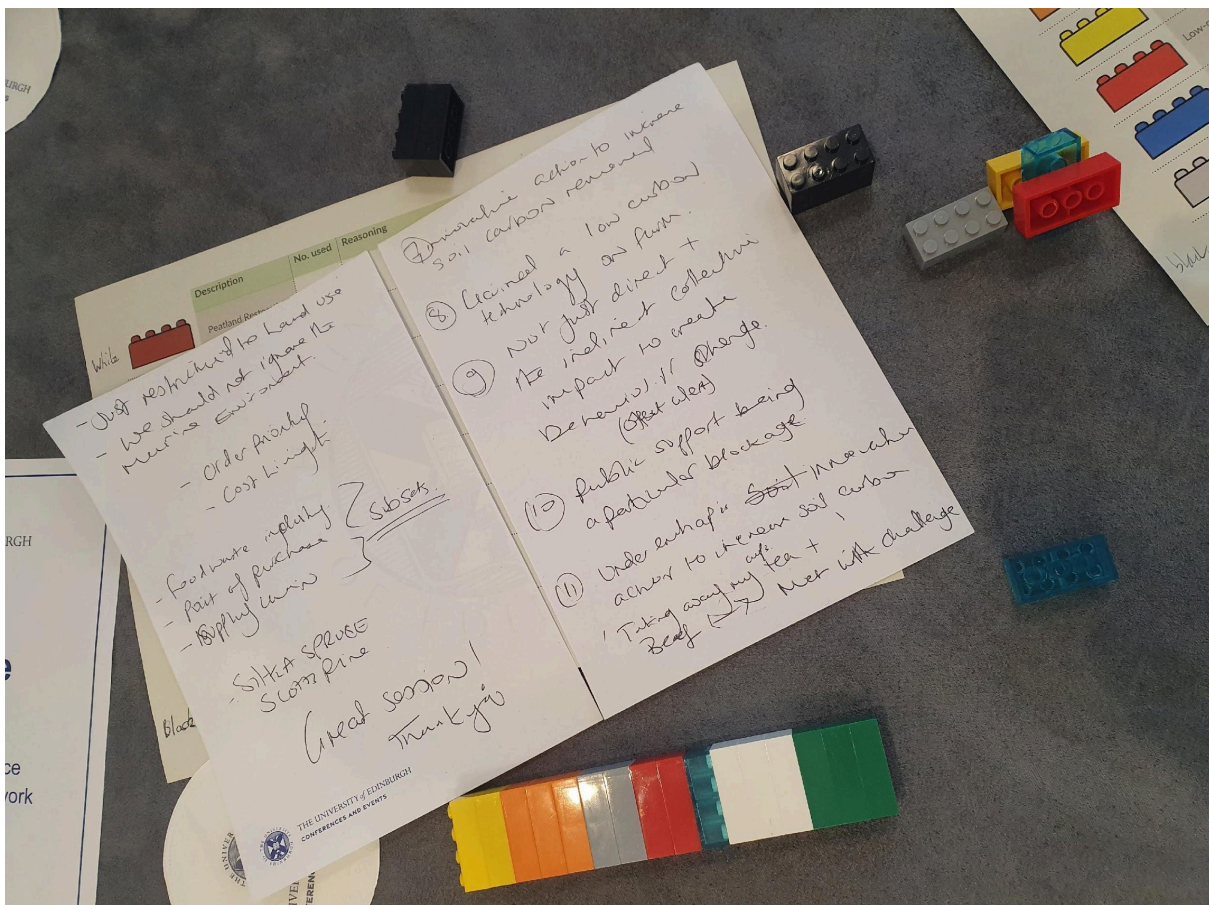 Description
No. used
Reasoning
White
Peatland
- Just restricted to land use
- We should not ignore the
Marine Environment.
- Order Priority.
- Cost
- Food waste
- Point of purchase
- Supply chain
Subsets.
- SITKA SPRUCE
SCOTS PINE
Great session!
Thank you
THE UNIVERSITY of EDINBURGH
CONFERENCES AND EVENTS
Black
(7) innovative action to increase
soil carbon removal
(8) a low carbon
technology on farm.
(9) Not just direct +
the indirect collective
impact to create
Behaviour Change.
(10) Public support being
a particular blockage
(11) innovative
action to increase soil carbon
! Taking away my tea +
Beef Met with challenge
RGH
ce
ork
Low-